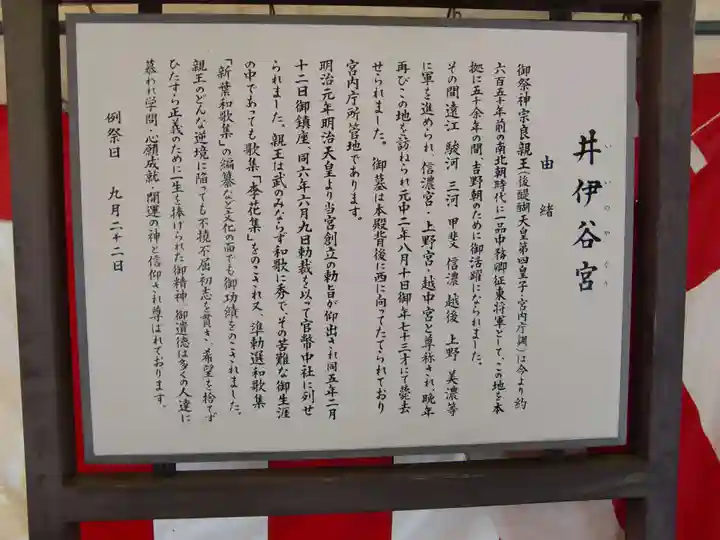 井伊谷宮
いいのやぐう
由緒
御祭神宗良親王(後醍醐天皇第四皇子・宮内庁調)は今より約
六百五十年前の南北朝時代に一品中務卿征東将軍として、この地を本
拠に五十余年の間、吉野朝のために御活躍になられました。
その間遠江 駿河 三河 甲斐 信濃 越後 上野 美濃等
に軍を進められ、信濃宮・上野宮・越中宮と尊称され、晩年
再びこの地を訪ねられ元中二年八月十日御年七十三才にて薨去
せられました。御墓は本殿背後に西に向ってたてられており
宮内庁所管地であります。
明治元年明治天皇より当宮創立の勅旨が仰出され同五年二月
十二日御鎮座、同六年六月九日勅裁を以って官幣中社に列せ
られました。親王は武のみならず和歌に秀で、その苦難な御生涯
の中であっても歌集「李花集」をのこされ又、準勅選和歌集
「新葉和歌集」の編纂など文化の面でも御功績をのこされました。
親王のどんな逆境に陥っても不撓不屈、初志を貫き、希望を捨てず
ひたすら正義のために一生を捧げられた御精神、御遺徳は多くの人達に
慕われ学問・心願成就・開運の神と信仰され尊ばれております。
例祭日 九月二十二日